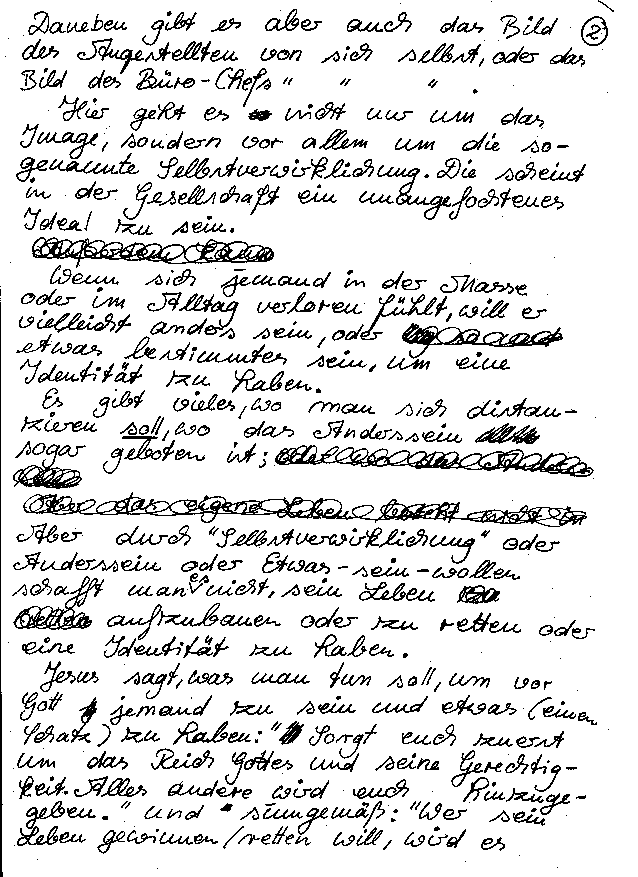 Daneben gibt es aber auch das Bild ②
des Angestellten von sich selbst, oder das
Bild des Büro-Chefs " " " .
Hier geht es nicht nur um das
Image, sondern vor allem um die so-
genannte Selbstverwirklichung. Die scheint
in der Gesellschaft ein unangefochtenes
Ideal zu sein.
Wenn sich jemand in der Masse
oder im Alltag verloren fühlt, will er
vielleicht anders sein, oder
etwas bestimmtes sein, um eine
Identität zu haben.
Es gibt vieles, wo man sich distan-
zieren soll, wo das Anderssein
sogar geboten ist;
Aber durch "Selbstverwirklichung" oder
Anderssein oder Etwas-sein-wollen
schafft man es nicht, sein Leben
aufzubauen oder zu retten oder
eine Identität zu haben.
Jesus sagt, was man tun soll, um vor
Gott jemand zu sein und etwas (einen
Schatz) zu haben: " Sorgt euch zuerst
um das Reich Gottes und seine Gerechtig-
keit. Alles andere wird euch hinzuge-
geben." und sinngemäß: "Wer sein
Leben gewinnen/retten will, wird es